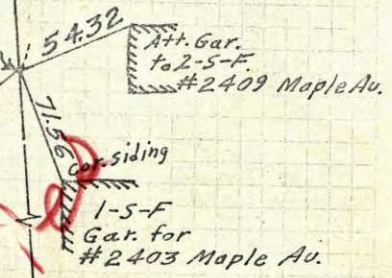 54.32
Att. Gar.
to 2-S-F.
#2409 Maple Av.
71.56
cor. siding
1-S-F
Gar. for
#2403 Maple Av.